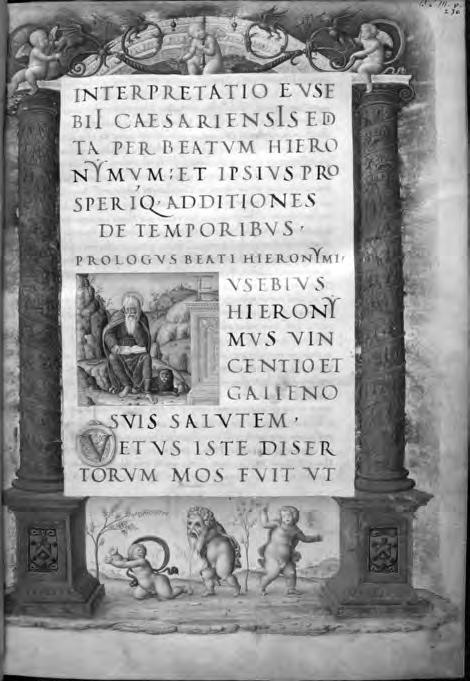 INTERPRETATIO EVSE
BII CAESARIENSIS ED
TA PER BEATVM HIERO
NYMVM: ET IPSIVS PRO
SPERIQ· ADDITIONES
DE TEMPORIBVS·
PROLOGVS BEATI HIERONYMI·
VSEBIVS
HIERONY
MVS VIN
CENTIO ET
GALIENO
SVIS SALVTEM·
VETVS ISTE DISER
TORVM MOS FVIT VT